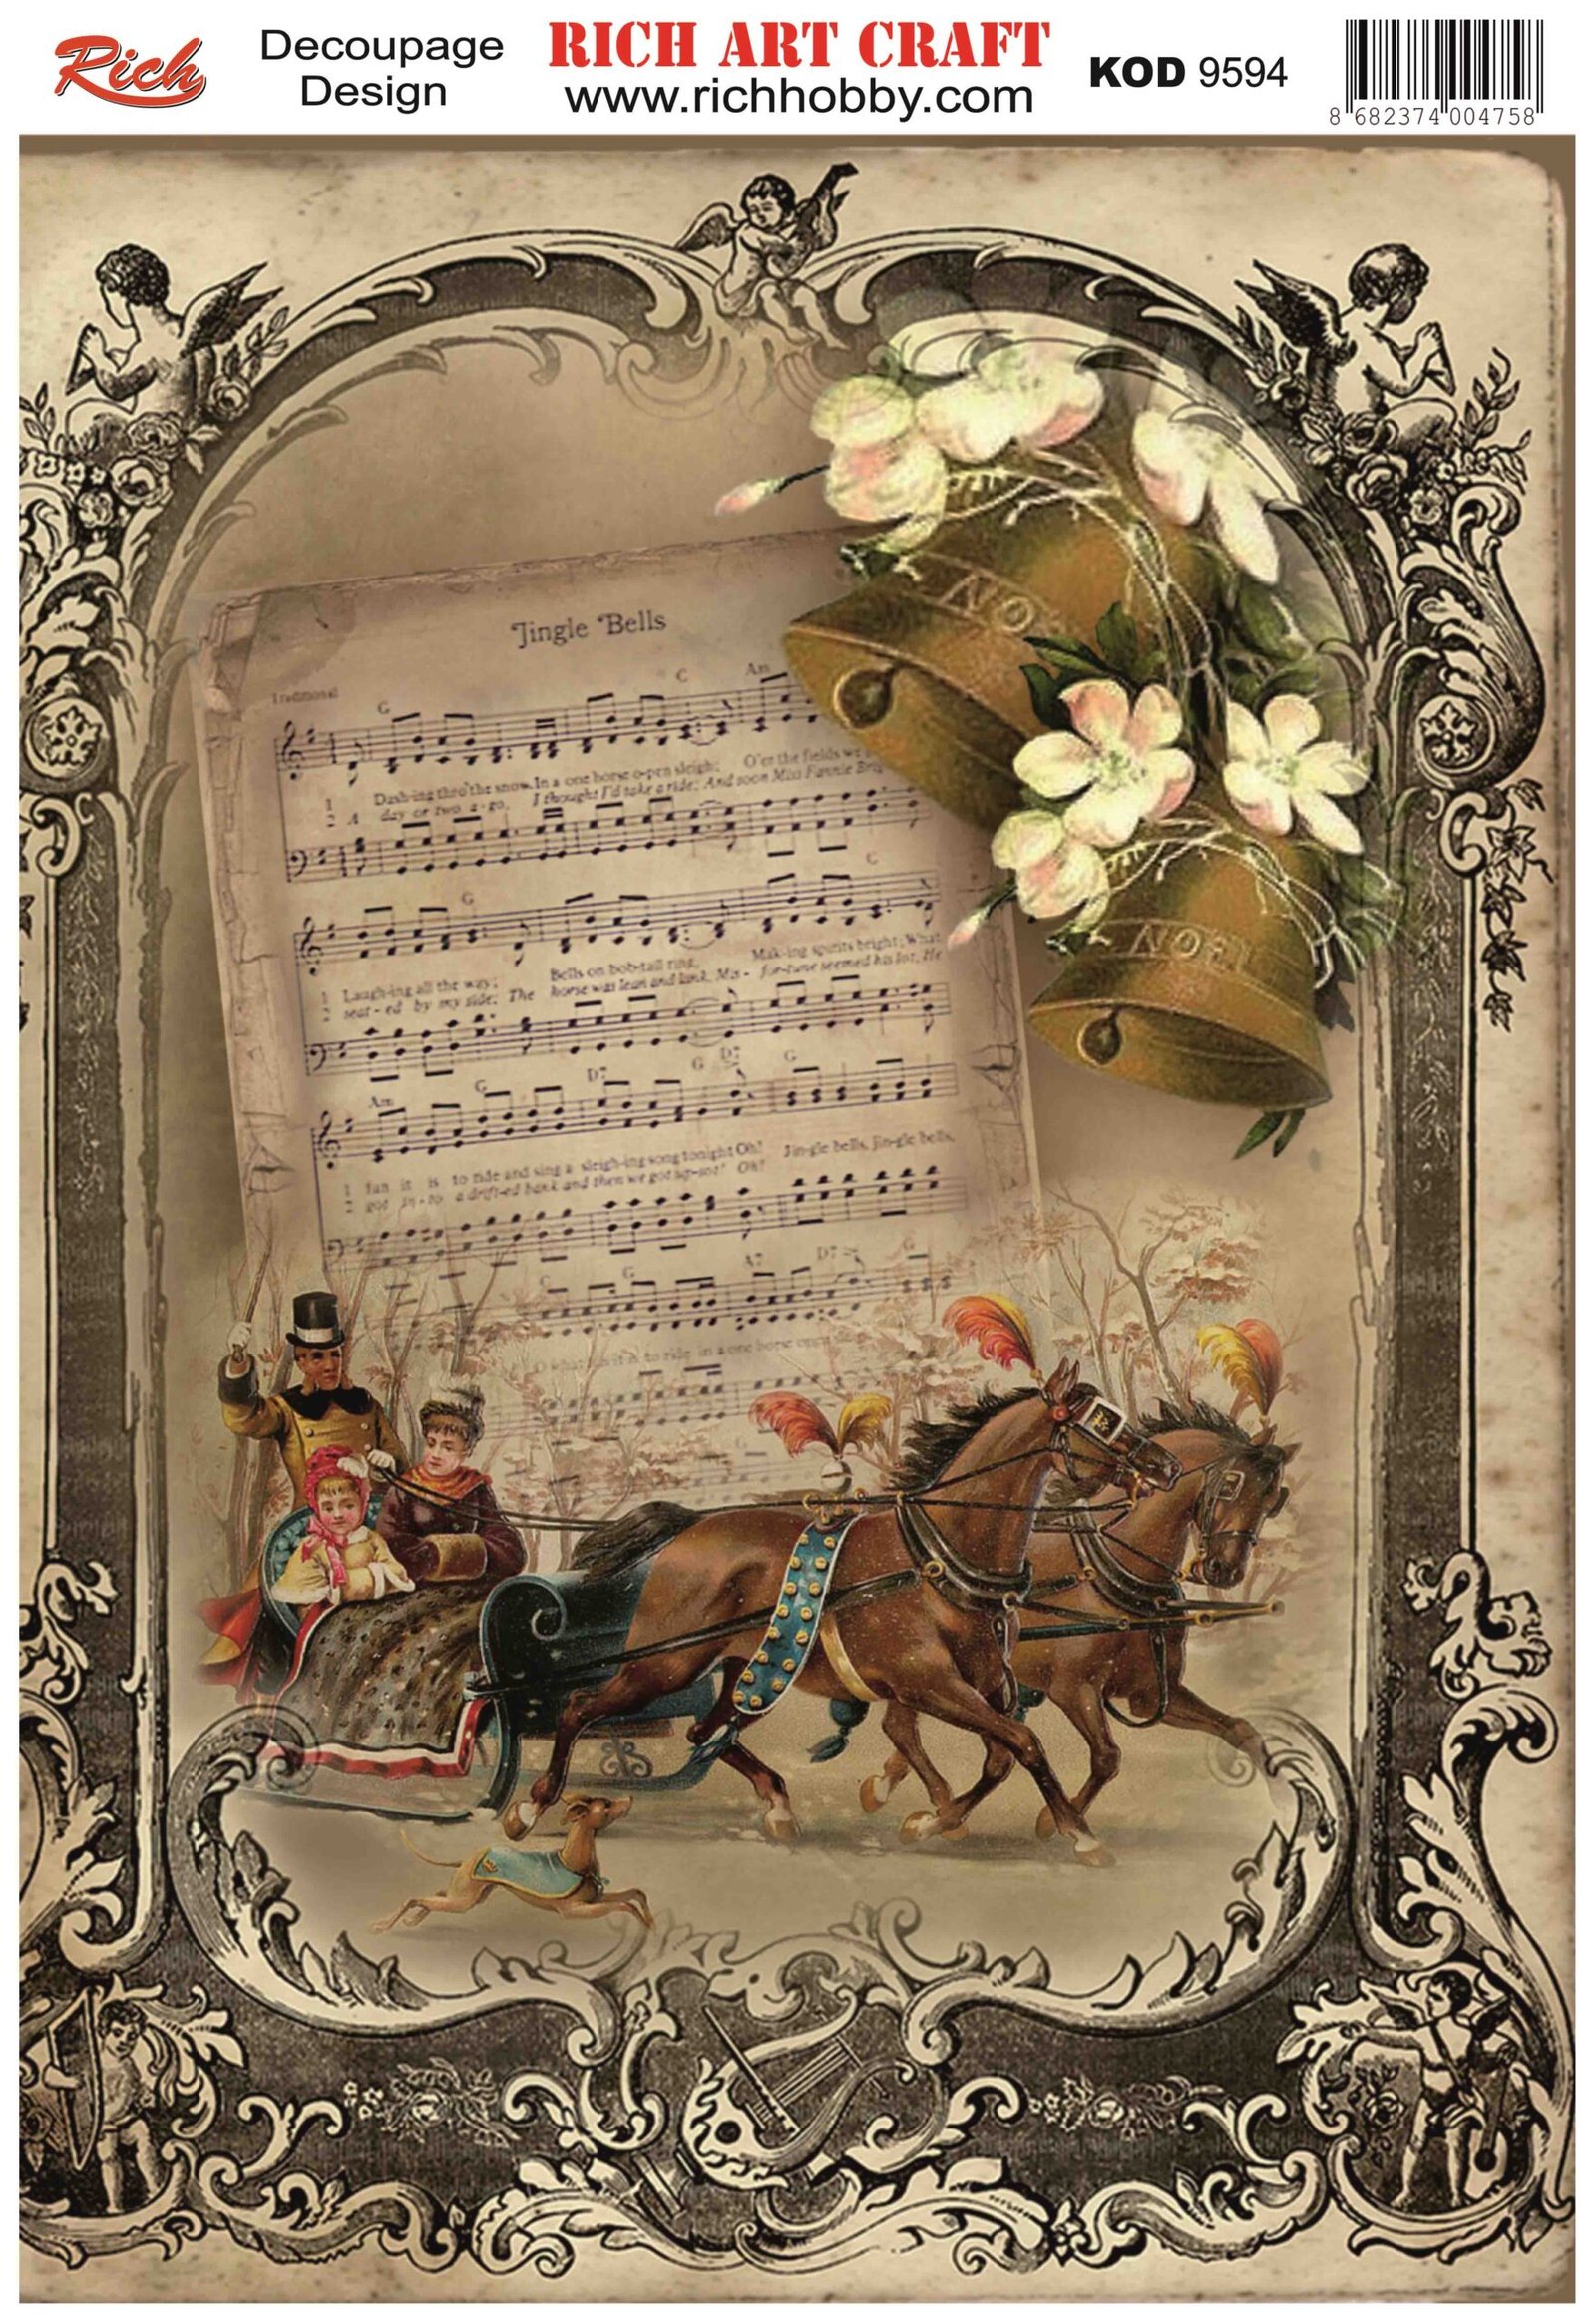 Rich
Decoupage
Design
RICH ART CRAFT
www.richhobby.com
KOD 9594
8 682374 004758
Jingle Bells
Traditional
G C Am
NO
1 Dash-ing thro' the snow, In a one horse o-pen sleigh; O'er the fields we
2 A day or two a-go, I thought I'd take a ride; And soon Miss Fannie Bri
C
G
1 Laugh-ing all the way; Bells on bob-tail ring, Mak-ing spirits bright; What
2 seat-ed by my side; The horse was lean and lank, Mis- for-tune seemed his lot, He
NOEL
Am G D7 G D7 G
1 fun it is to ride and sing a sleigh-ing song tonight Oh! Jin-gle bells, Jin-gle bells,
2 got in-to a drift-ed bank and then we got up-sot! Oh!
C G A7 D7 G
O what fun it is to ride in a one horse open